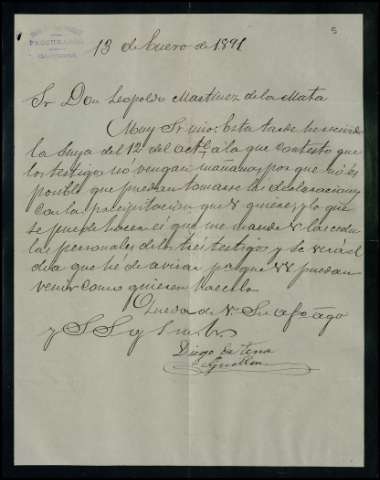 PROCURADOR
5
13 de Enero de 1891
Sr Don Leopoldo Martinez de la Mata
Muy Sr mio: Esta tarde he recivido
la suya del 12 del act.l a la que contesto que
los testigos nó vengan mañana, por que nó es
posible que puedan tomarse las declaraciones
con la precipitacion que V quiere, y lo que
se puede hacer es que me mande V las cedu
las personales de los tres testigos y se verá el
dia que hé de avisar p.a que VV puedan
venir como quieren hacerlo.
Queda de V Su af.o amigo
y S S q b s m
Diego de Tena